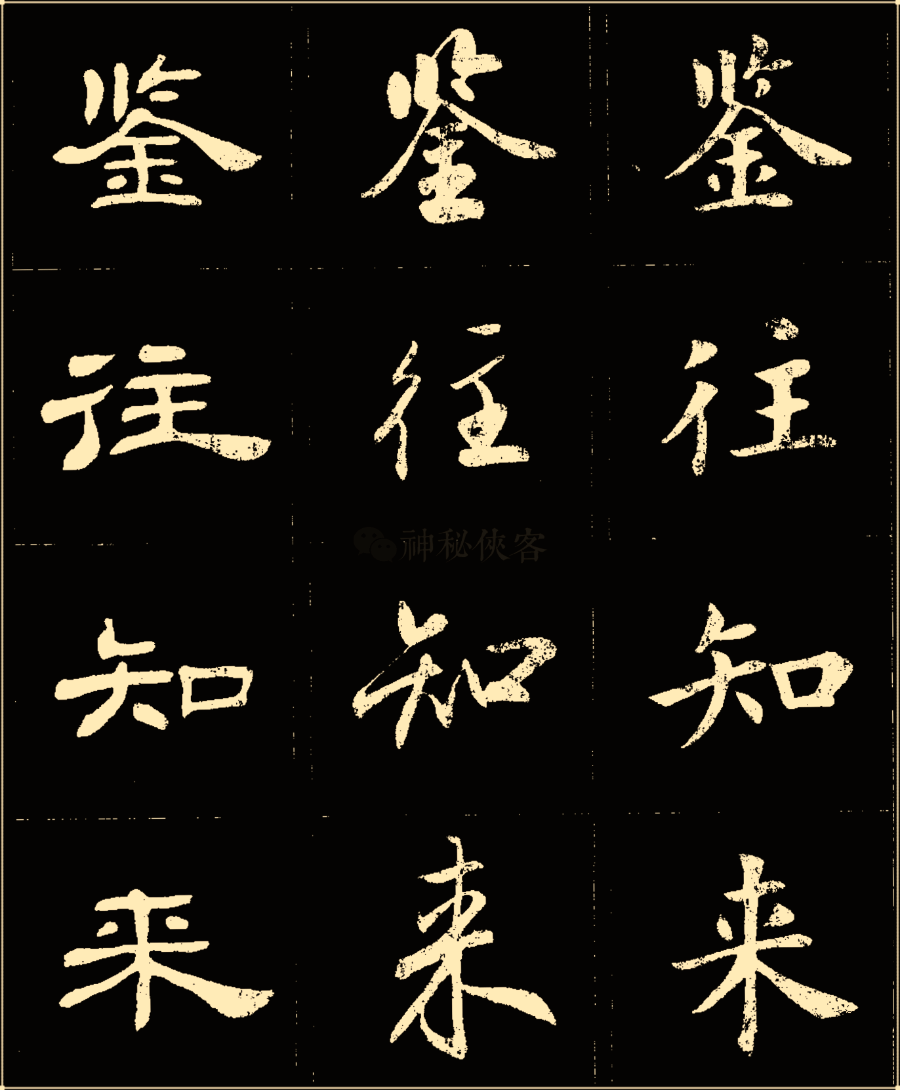 鉴 鉴 鉴
往 往 往
知 知 知
来 来 来
神秘侠客